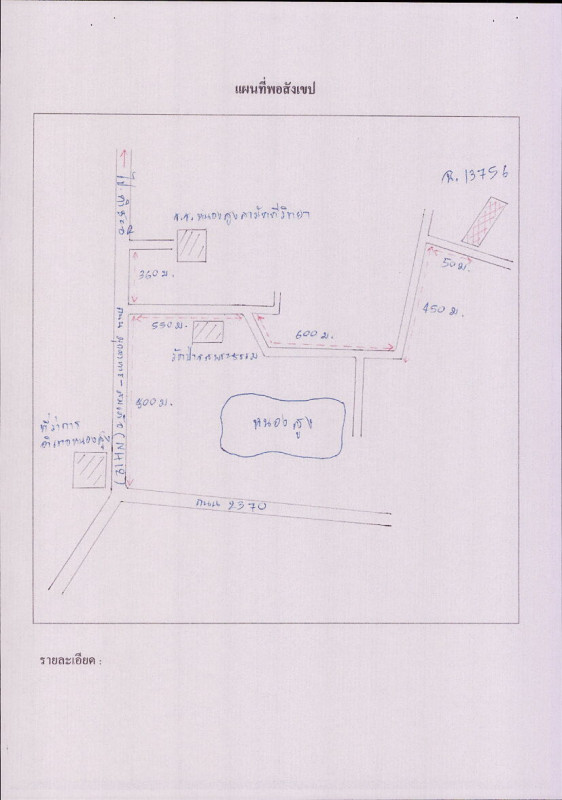 แผนที่พอสังเขป
R. 13756
ร.ร. หนองสูงสามัคคีวิทยา
360 ม.
50 ม.
450 ม.
550 ม.
600 ม.
วัดป่า
400 ม.
หนองสูง
ที่ว่าการ
อำเภอหนองสูง
(NH12)
ถนน 2370
รายละเอียด :